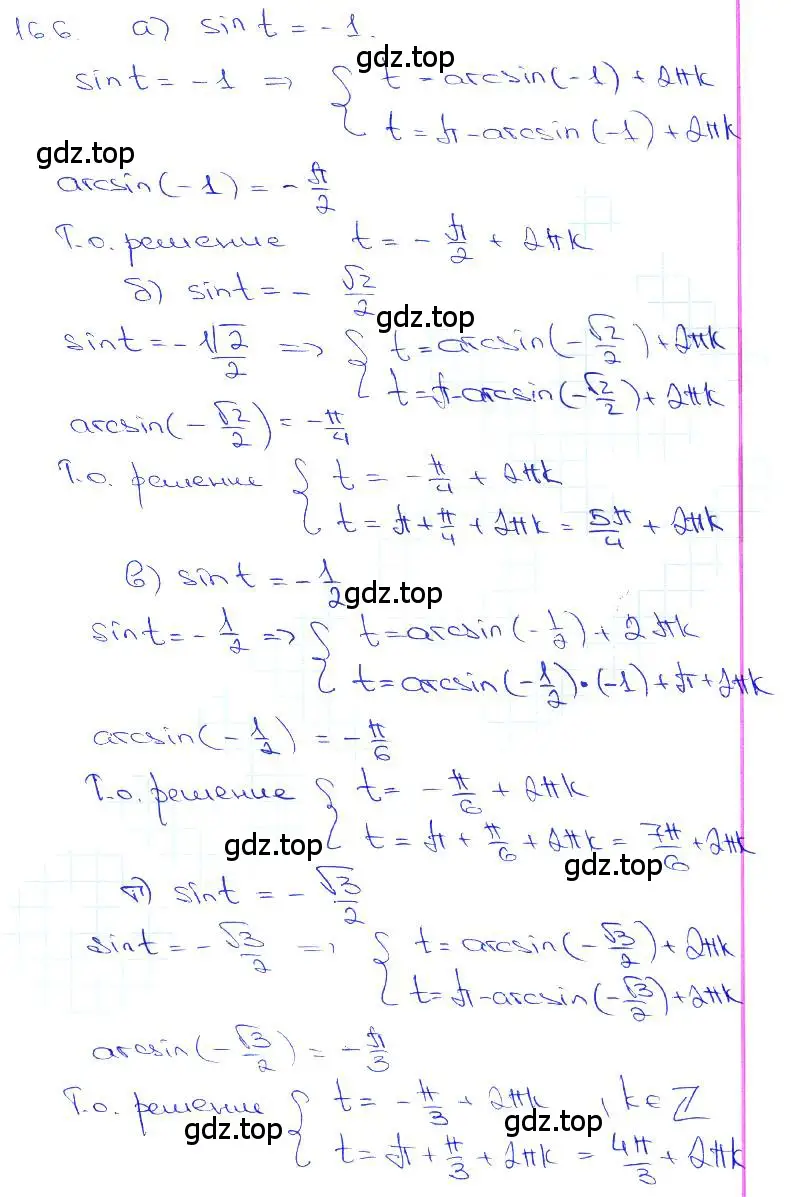 16.6. а) sin t = -1.
gdz.top
sin t = -1 => { t = arcsin(-1) + 2πk
t = π - arcsin(-1) + 2πk
gdz.top
arcsin(-1) = -π/2
Т.о. решение t = -π/2 + 2πk
б) sin t = - √2/2
gdz.top
sin t = -√2/2 => { t = arcsin(-√2/2) + 2πk
t = π - arcsin(-√2/2) + 2πk
arcsin(-√2/2) = -π/4
Т.о. решение { t = -π/4 + 2πk
t = π + π/4 + 2πk = 5π/4 + 2πk
в) sin t = -1/2
gdz.top
sin t = -1/2 => { t = arcsin(-1/2) + 2πk
t = arcsin(-1/2)·(-1) + π + 2πk
arcsin(-1/2) = -π/6
Т.о. решение { t = -π/6 + 2πk
t = π + π/6 + 2πk = 7π/6 + 2πk
gdz.top
gdz.top
г) sin t = -√3/2
sin t = -√3/2 => { t = arcsin(-√3/2) + 2πk
t = π - arcsin(-√3/2) + 2πk
arcsin(-√3/2) = -π/3
Т.о. решение { t = -π/3 + 2πk , k ∈ Z
gdz.top
gdz.top
t = π + π/3 + 2πk = 4π/3 + 2πk